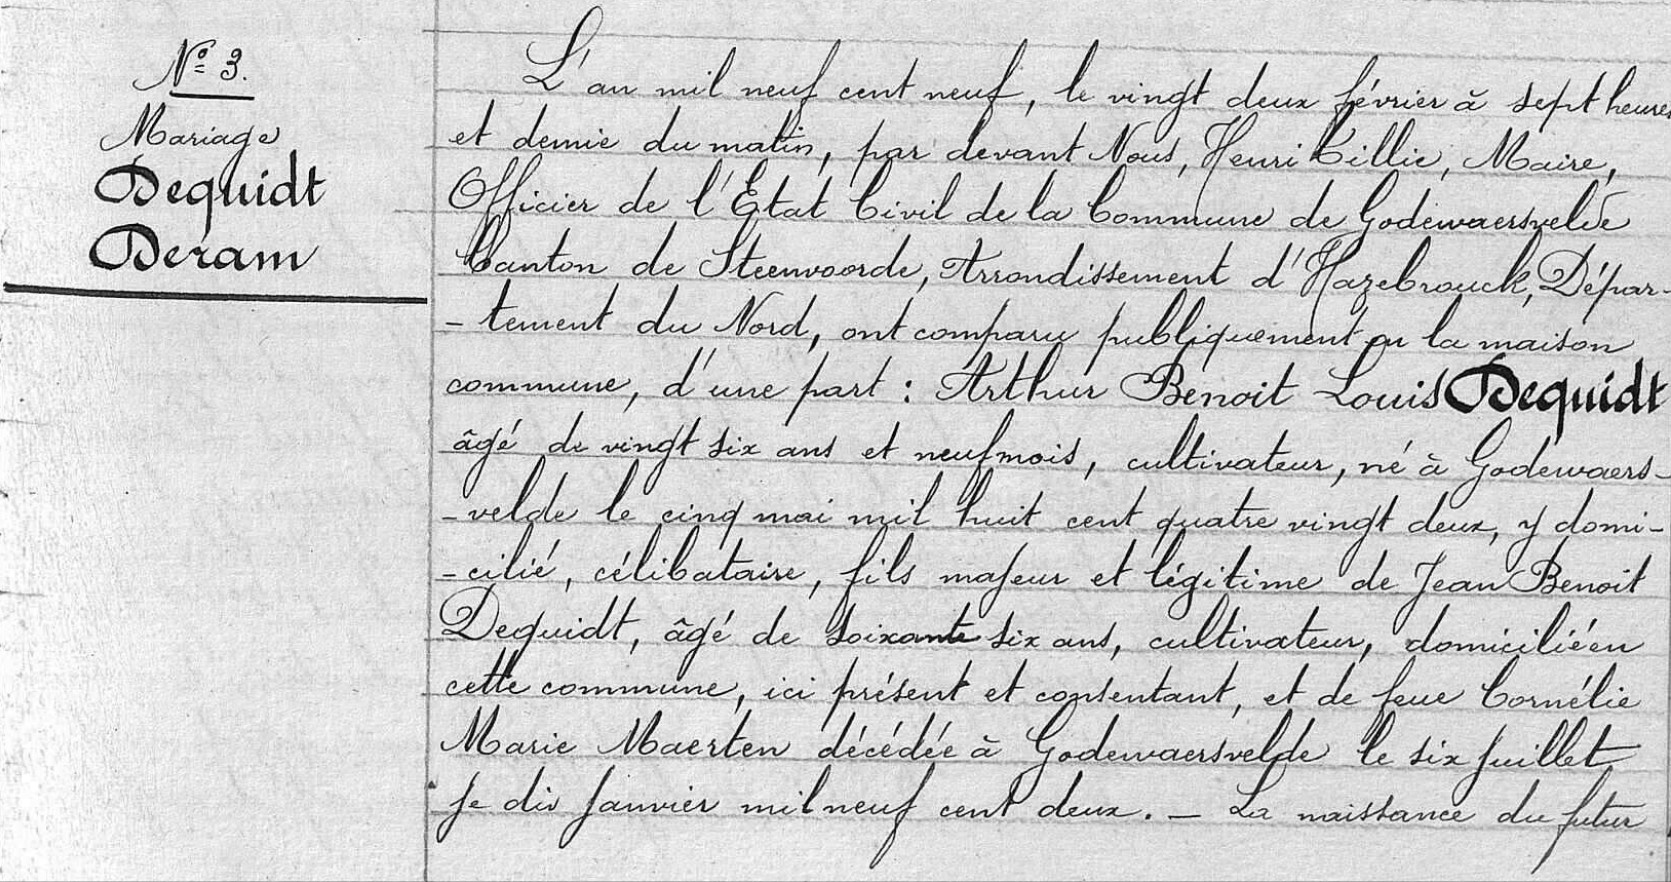 N° 3.
Mariage
Dequidt
Deram
L'an mil neuf cent neuf, le vingt deux février à sept heures
et demie du matin, par devant Nous, Henri Cillie, Maire,
Officier de l'Etat Civil de la Commune de Godewaersvelde
Canton de Steenvoorde, Arrondissement d'Hazebrouck, Dépar-
-tement du Nord, ont comparu publiquement en la maison
commune, d'une part : Arthur Benoit Louis Dequidt
âgé de vingt six ans et neuf mois, cultivateur, né à Godewaers-
-velde le cinq mai mil huit cent quatre vingt deux, y domi-
-cilié, célibataire, fils majeur et légitime de Jean Benoit
Dequidt, âgé de soixante six ans, cultivateur, domicilié en
cette commune, ici présent et consentant, et de feue Cornélie
Marie Maerten décédée à Godewaersvelde le six juillet
Je dis Janvier mil neuf cent deux. - La naissance du futur